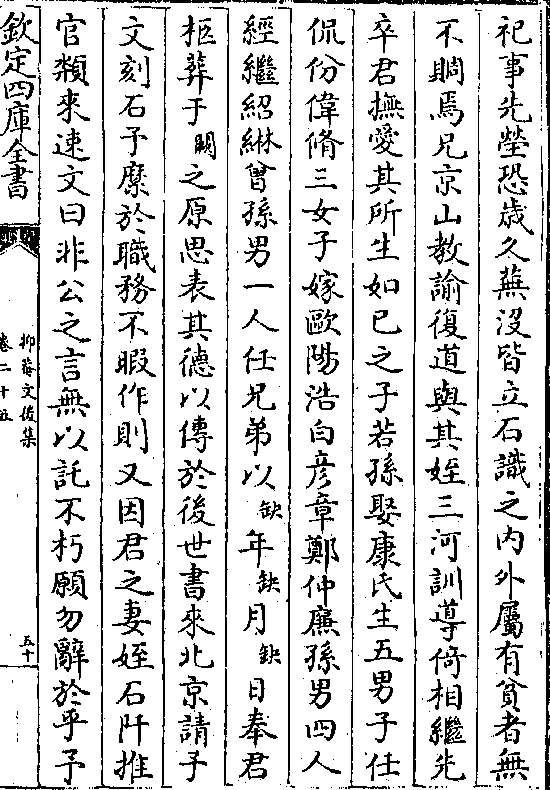 祀事先塋恐歳久蕪没皆立石識之内外屬有貧者無
不賙焉兄京山教諭復道與其姪三河訓導倚相繼先
卒君撫愛其所生如已之子若孫娶康氏生五男子任
侃份偉脩三女子嫁歐陽浩白彦章鄭仲廉孫男四人
經繼紹綝曾孫男一人任兄弟以缺年缺月缺日奉君
柩葬于闕之原思表其德以傳於後世書來北京請予
文刻石予縻於職務不暇作則又因君之妻姪石阡推
官𩔖來速文曰非公之言無以託不朽願勿辭於乎予
欽定四庫全書
抑菴文後集
卷二十五
五十